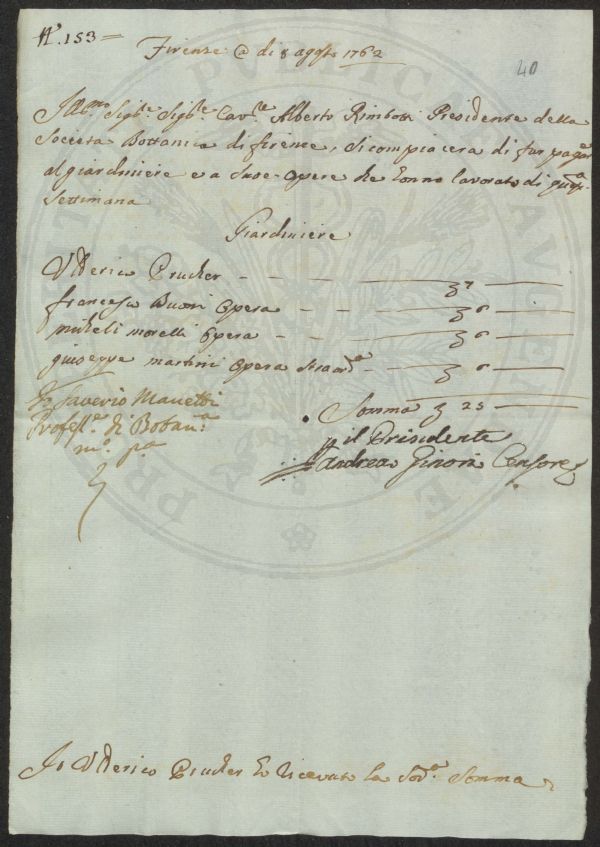 N.° 153 =
Firenze @ di 8 agosto 1762
40
Ill:mo Sig:re Sig:re Cav:re Alberto Rimbotti Presidente della
Societa Bottanica di firenze, Si compiacera di far pagar
al giardiniere e a Sue Opere he hanno lavorato di questa
Settimana
Giardiniere
Vlderico Prucker — — — — ʒ 7
francesco Buoni Opera — — — ʒ 6
miheli morelli Opera — — ʒ 6
giuseppe martini Opera straord:a — ʒ 6
Somma ʒ 25
Io Saverio Manetti
Profess:e di Botan:a
m:o p:a
p il Presidente
Andrea Ginori Censore
Io Vlderico Prucker ho Ricevuto la Sod:a Somma
PUBLICAE